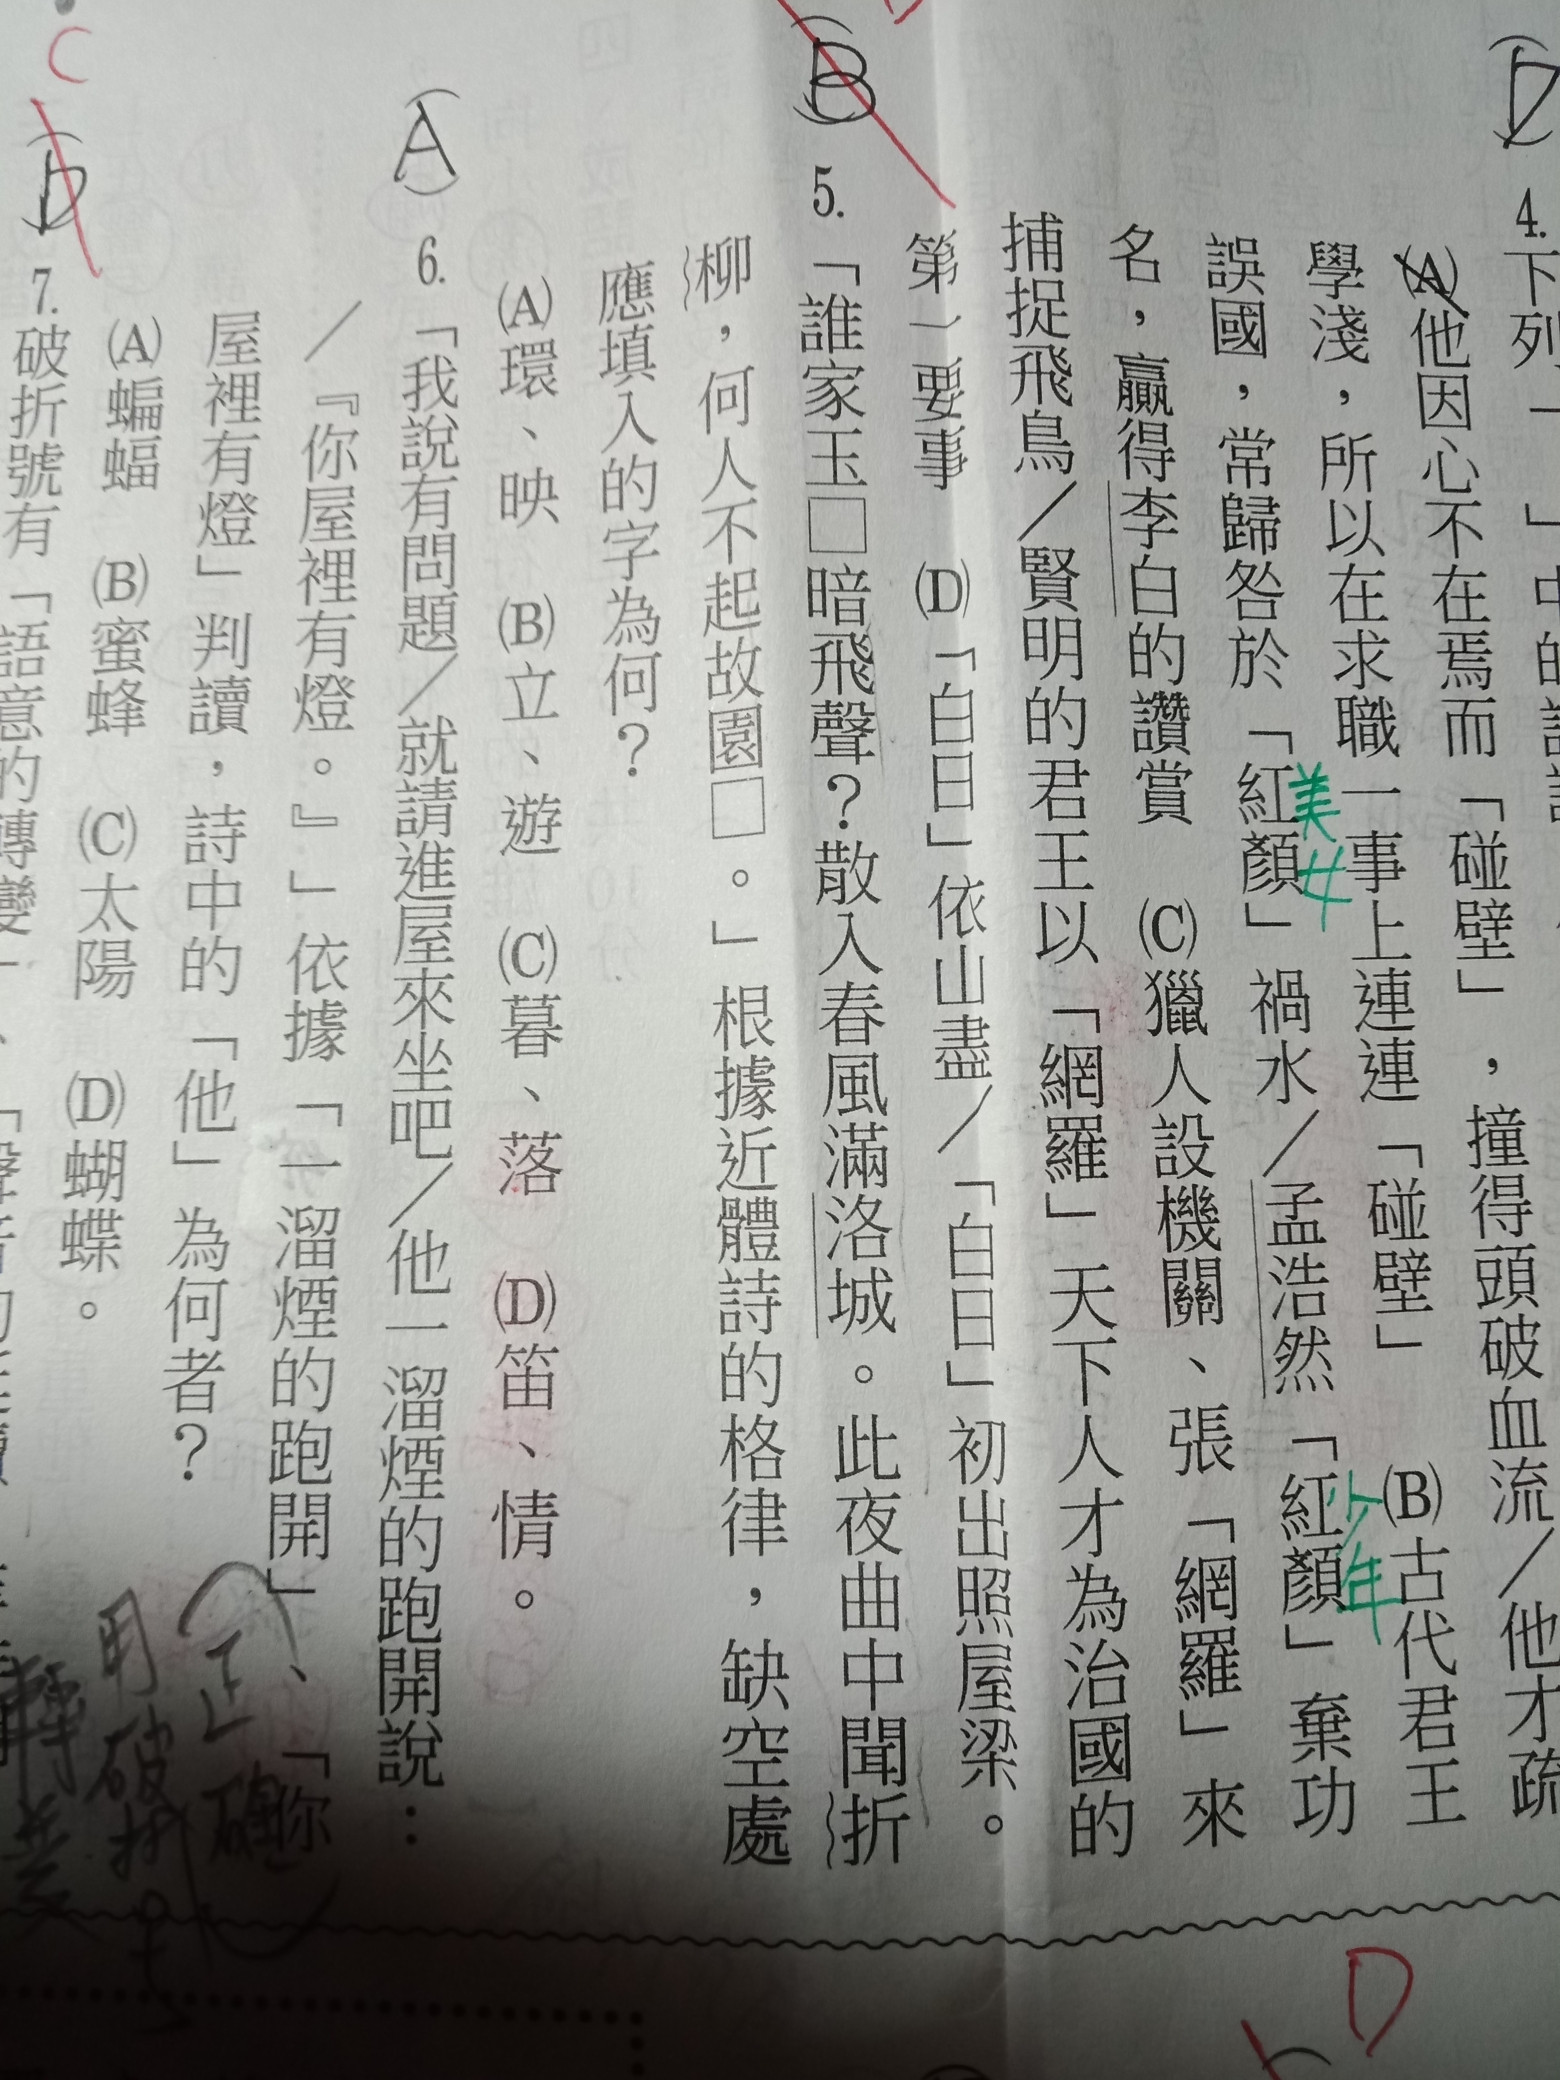 D
4.下列
(A)他因心不在焉而「碰壁」，撞得頭破血流／他才疏
學淺，所以在求職一事上連連「碰壁」 (B)古代君王
誤國，常歸咎於「紅顏」禍水／孟浩然「紅顏」棄功
美女
少年
名，贏得李白的讚賞 (C)獵人設機關、張「網羅」來
捕捉飛鳥／賢明的君王以「網羅」天下人才為治國的
第一要事 (D)「白日」依山盡／「白日」初出照屋梁。
(B)
5.「誰家玉□暗飛聲？散入春風滿洛城。此夜曲中聞折
柳，何人不起故園□。」根據近體詩的格律，缺空處
應填入的字為何？
(A)環、映 (B)立、遊 (C)暮、落 (D)笛、情。
(A)
6.「我說有問題／就請進屋來坐吧／他一溜煙的跑開說：
／『你屋裡有燈。』」依據「一溜煙的跑開」、「你
屋裡有燈」判讀，詩中的「他」為何者？
(A)蝙蝠 (B)蜜蜂 (C)太陽 (D)蝴蝶。
C
(D)
7.破折號有「語意的轉變」、「聲音的延續
正確
用破折號
D